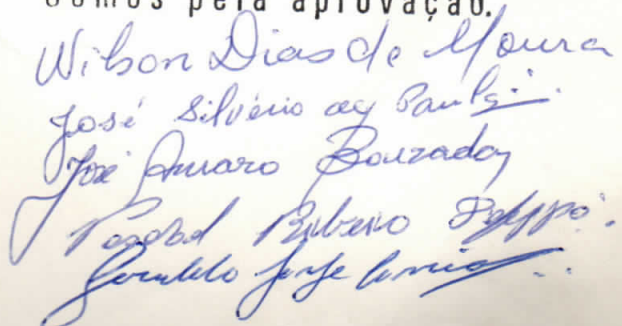 Somos pela aprovação.
Wilson Dias de Moura
José Silvério de Paula
José Amaro Bouzada
Ribeiro
Geraldo Jorge